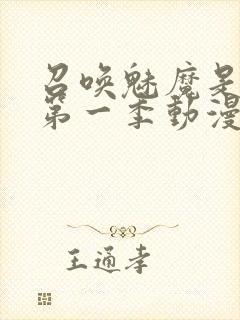 召喚魅魔是
第一季動漫
王通孝